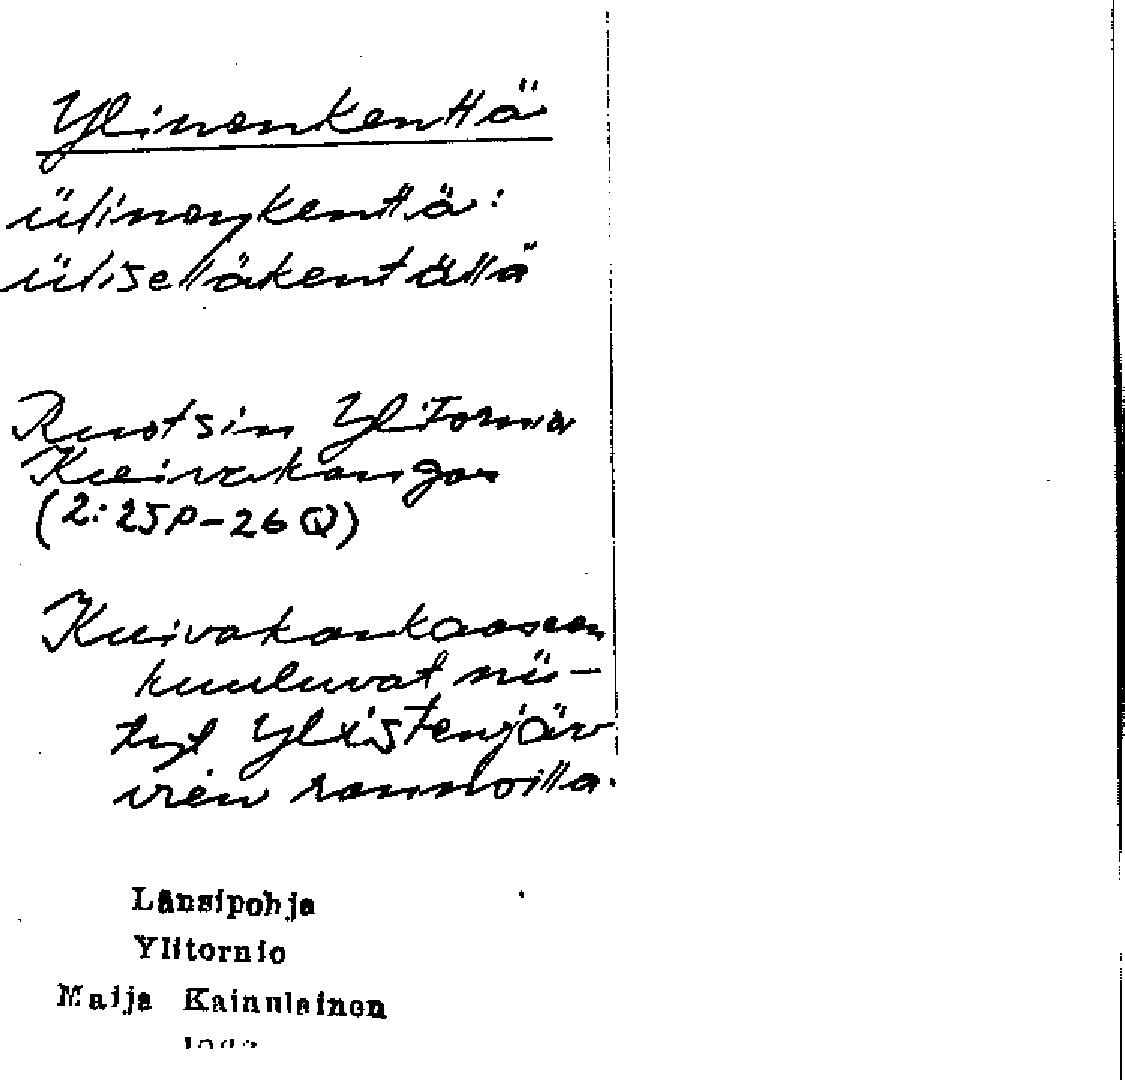 Ylinenkenttä
ülineŋkenttä:
üliselläkentällä
Ruotsin Ylitornio
Kuivakangas
(2:25P-26Q)
Kuivakankaaseen
kuuluvat nii-
tyt Ylistenjär
vien rannoilla.
Länsipohja
Ylitornio
Maija Kainulainen